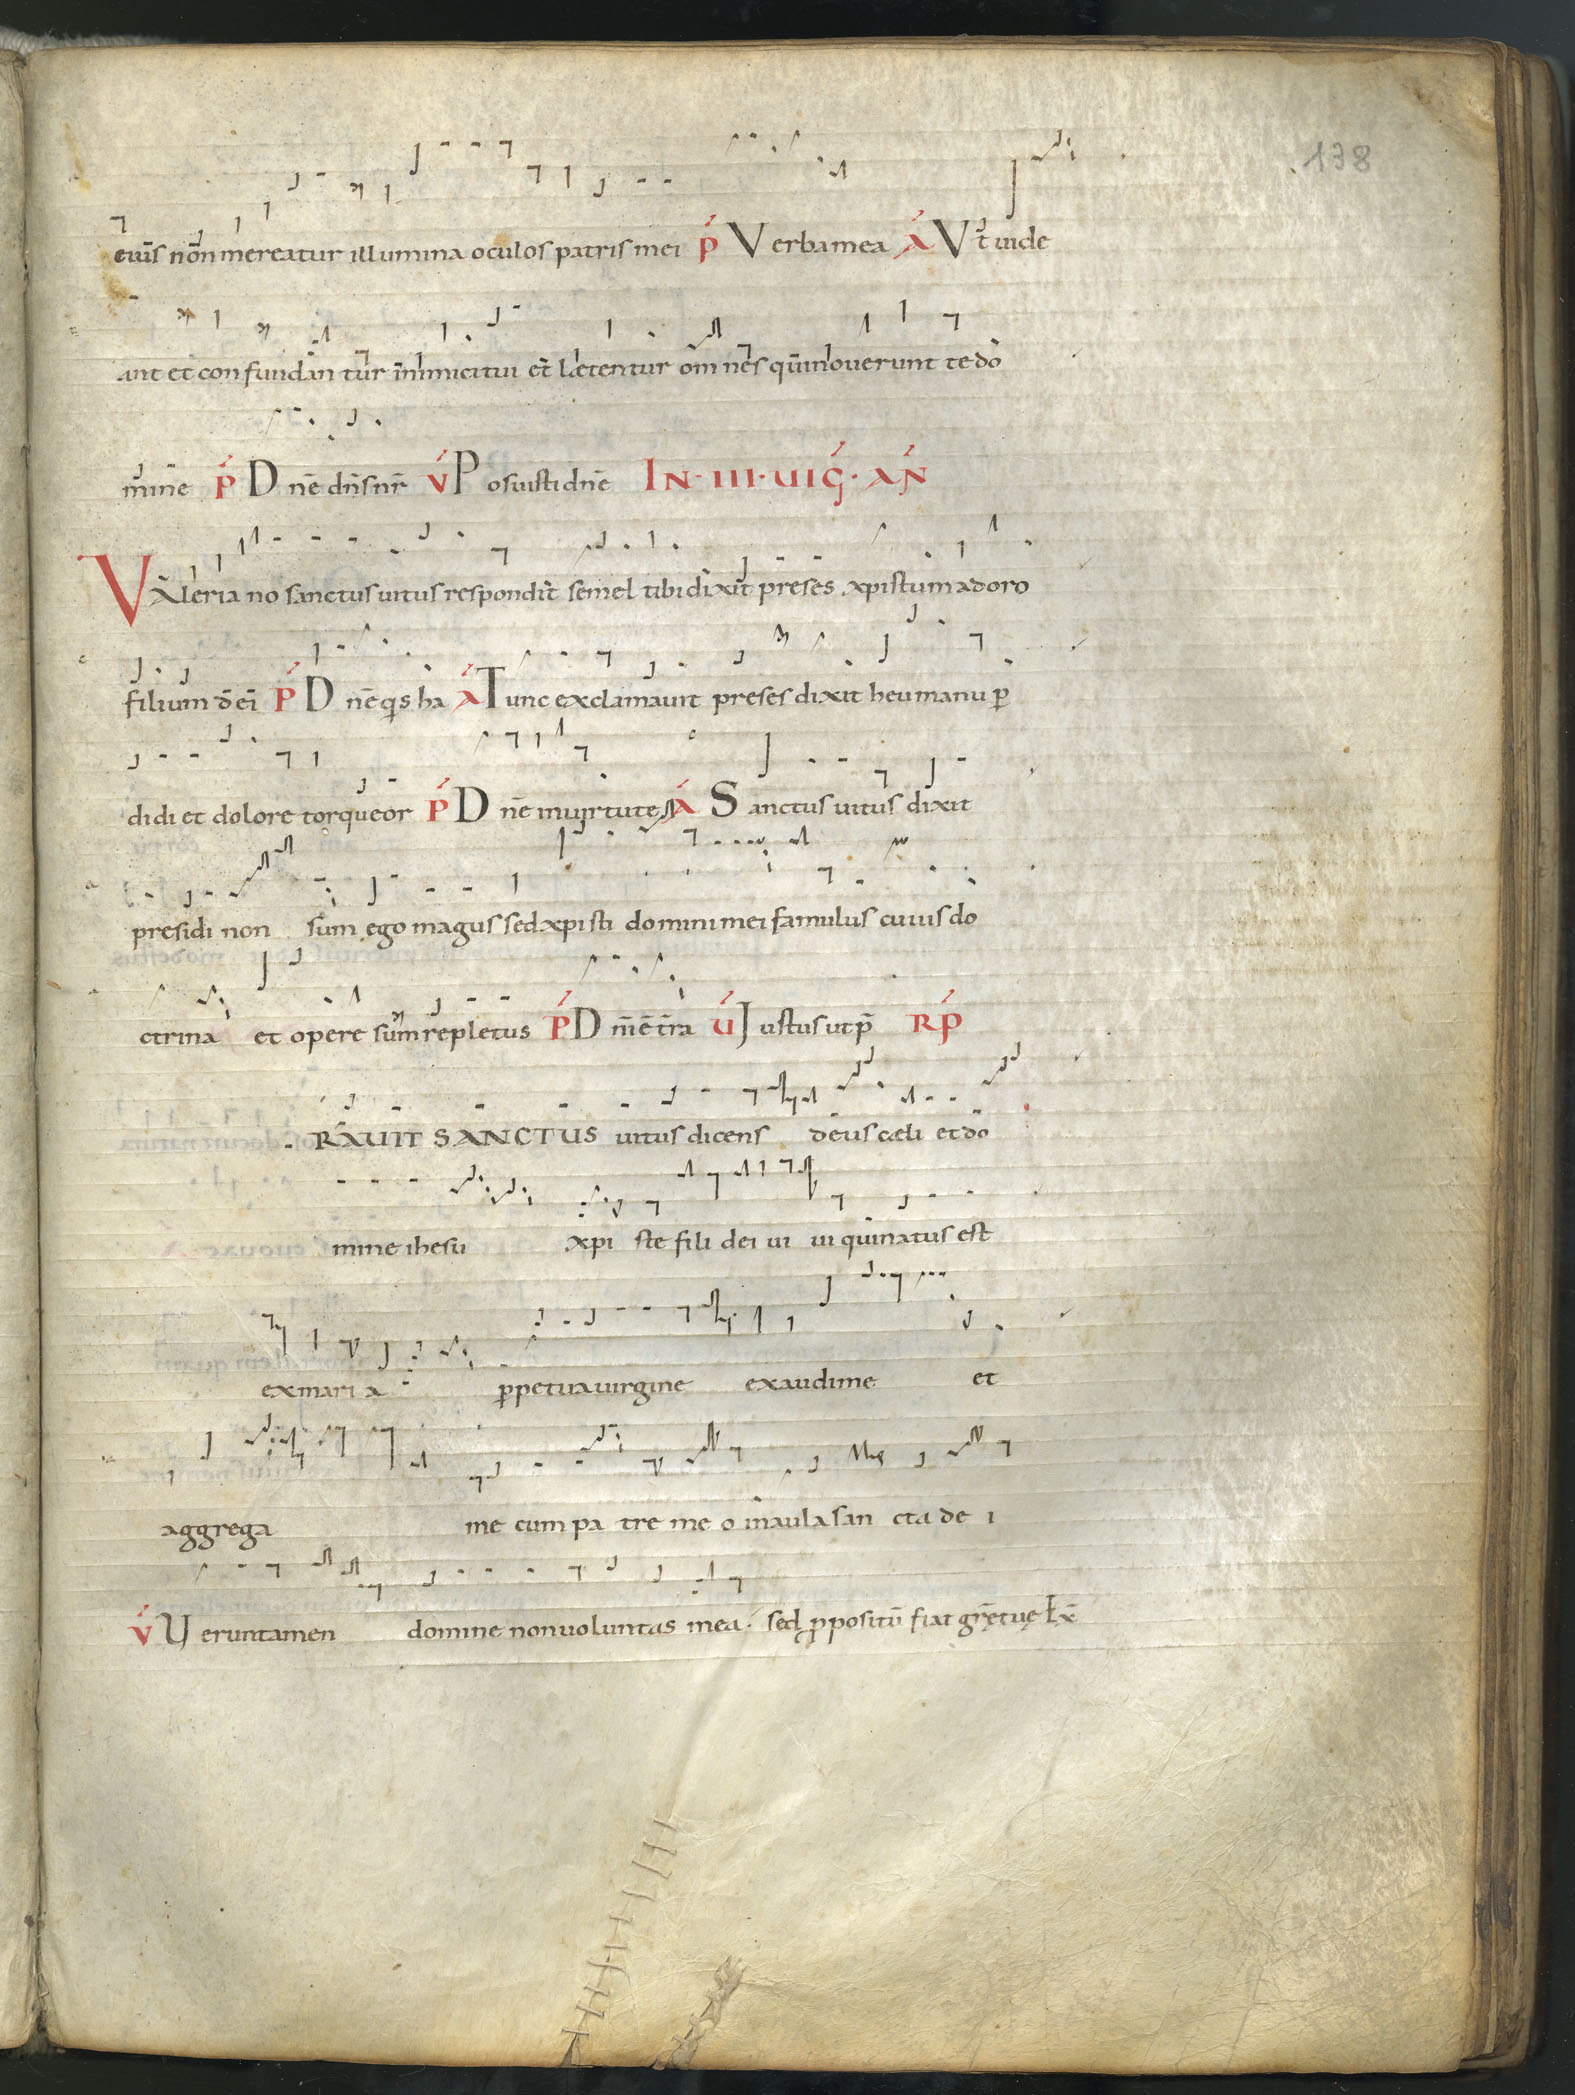 138
eiuſ non mereatur illumina oculos patris mei P Verba mea A Vt uide
ant et confundantur inimici tui et lætentur omnes qui nouerunt te do
mine P Dnē dn̄s nr̄ V Posuisti dnē IN · III · UIG̃ · AN̄
Valeriano sanctus uitus respondit semel tibi dixit preses xpistum adoro
filium dei P Dnē qs ha A Tunc exclamauit preses dixit heu manu p
didi et dolore torqueor P Dnē in uirtute A Sanctus uitus dixit
presidi non sum ego magus sed xpisti domini mei famulus cuius do
ctrina et opere sum repletus P Dn̄e t̄ra U Iustus ut p̄ RP
. RAUIT SANCTUS uitus dicens deus cæli et do
mine ihesu xpi ste fili dei ui ui qui natus est
ex mari a ppetua uirgine exaudi me et
aggrega me cum pa tre me o in aula san cta de i
V Ueruntamen domine non uoluntas mea · sed ppositū fiat gr̄e tuę